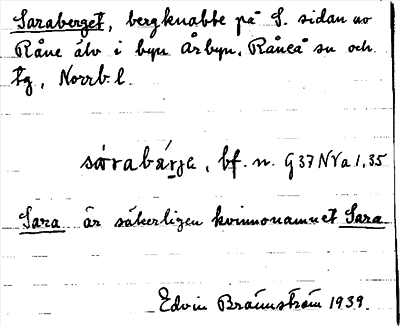 Saraberget, bergknabbe på S. sidan av
Råne älv i byn Årbyn. Råneå sn och
tg, Norrb. l.
sàrabár̥je, bf. n. G37NVa 1,35
Sara är säkerligen kvinnonamnet Sara
Edvin Brännström 1939.